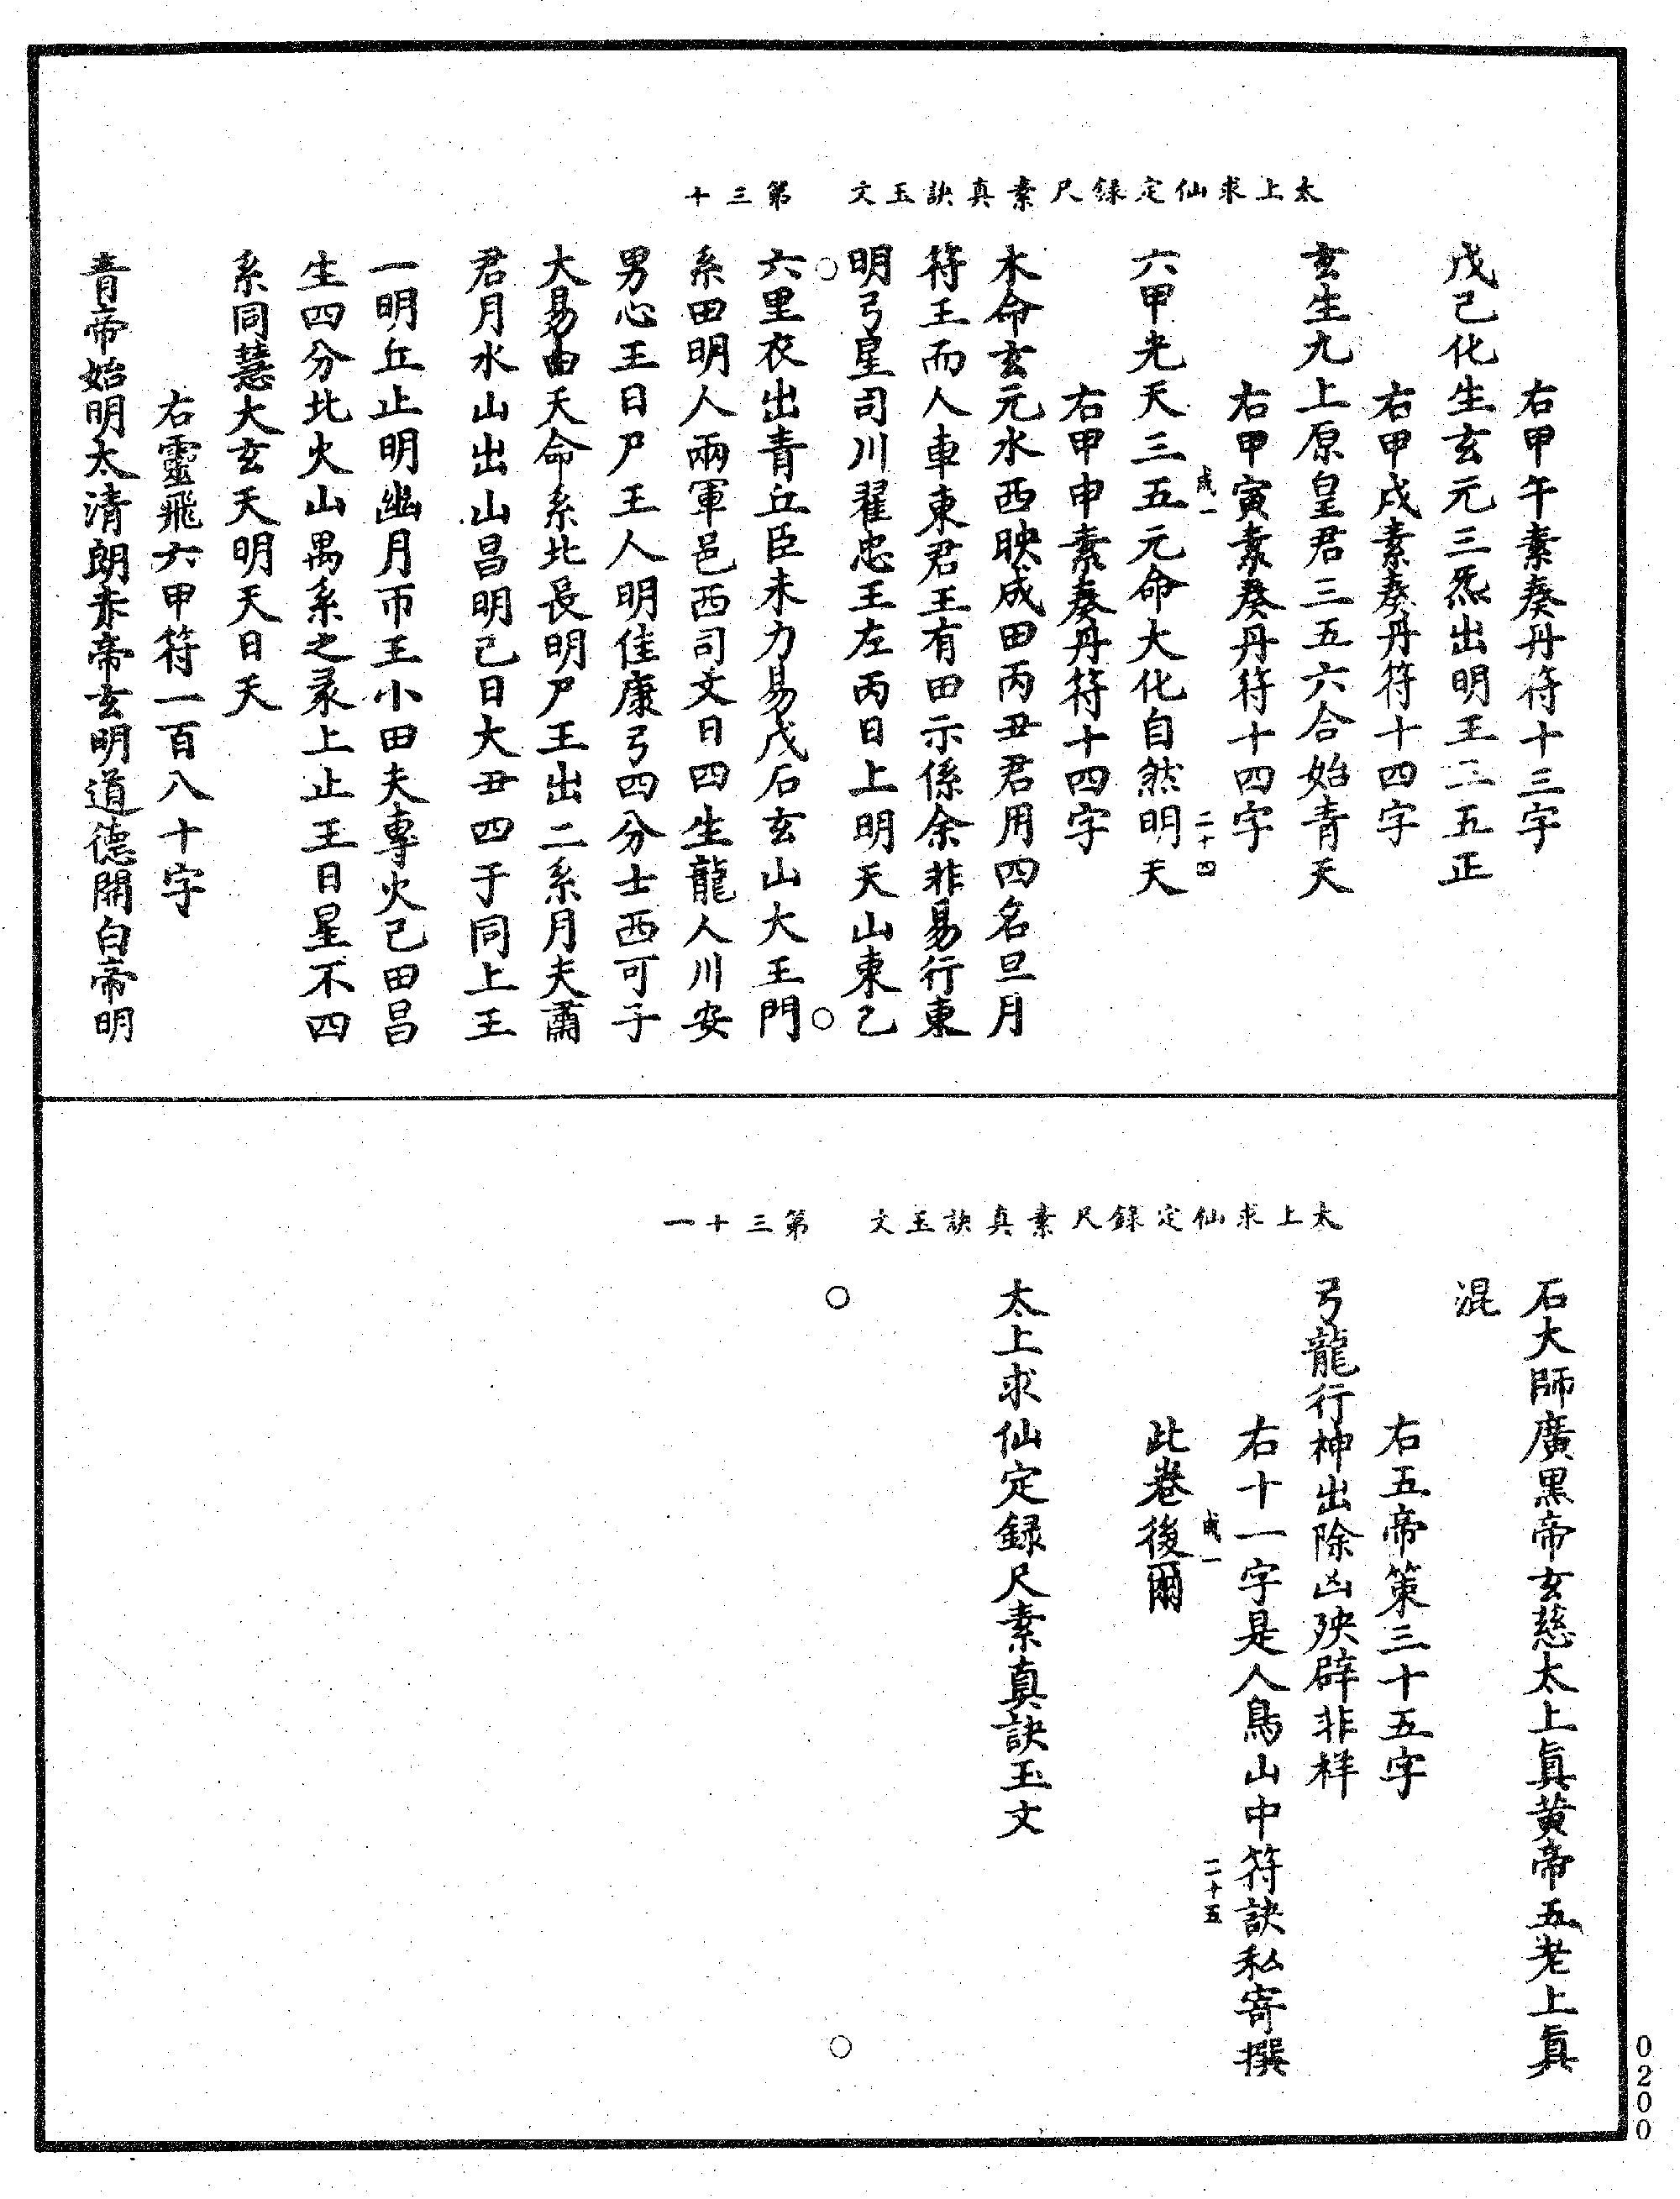 太上求仙定錄尺素真訣玉文　第三十
右甲午素奏丹符十三字
戊己化生玄元三炁出明王二五正
右甲戌素奏丹符十四字
玄生九上原皇君三五六合始青天
右甲寅素奏丹符十四字
咸一　二十四
六甲光天三五元命大化自然明天
右甲申素奏丹符十四字
木命玄元水西映成田丙丑君用四名旦月
符王而人車東君王有田示係余非易行東
明弓星司川翟忠王左丙日上明天山東乙
六里衣出青丘臣未力易戊石玄山大王門
系田明人兩軍邑西司文日四生龍人川安
男心王日尸王人明佳康弓四分士西可于
大易曲天命系北長明尸王出二系月夫肅
君月水山出山昌明己日大丑四于同上王
一明丘止明幽月帀王小田夫專火己田昌
生四分北火山禺系之录上止王日星不四
系同慧大玄天明天日天
右靈飛六甲符一百八十字
青帝始明太清朗赤帝玄明道德開白帝明
太上求仙定錄尺素真訣玉文　第三十一
石大師廣黑帝玄慈太上眞黄帝五老上眞
混
右五帝策三十五字
弓龍行神出除凶殃辟非祥
右十一字是人鳥山中符訣私寄撰
咸一　二十五
此卷後爾
太上求仙定録尺素真訣玉文
0200